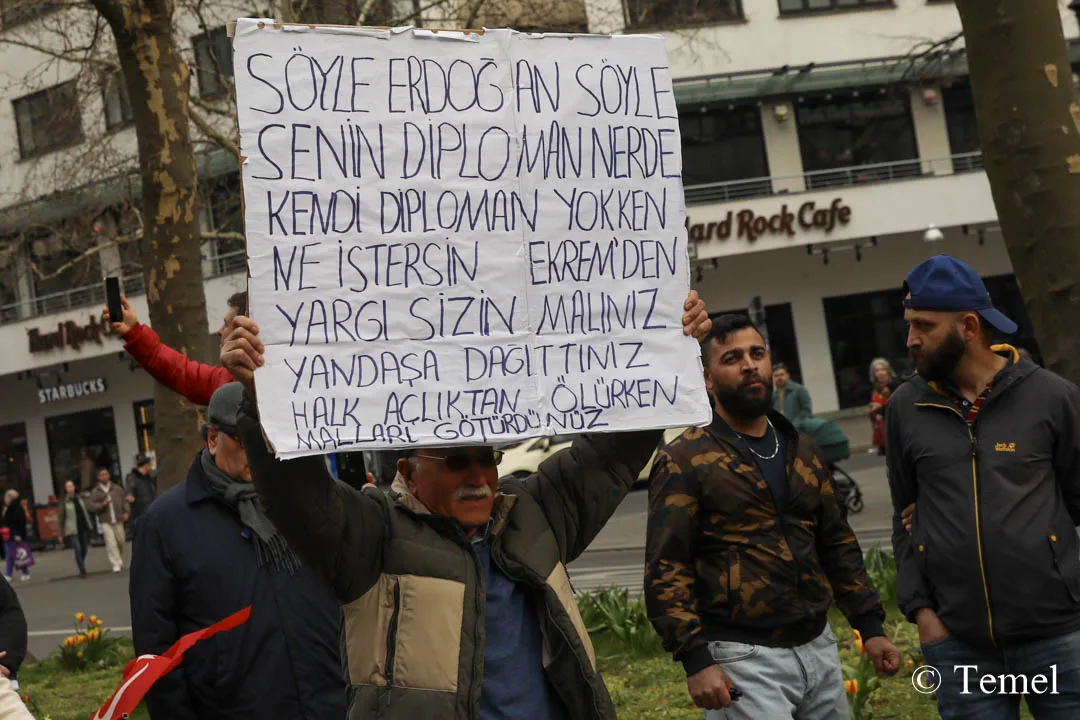 SÖYLE ERDOĞAN SÖYLE
SENİN DİPLOMAN NERDE
KENDİ DİPLOMAN YOKKEN
NE İSTERSİN EKREM'DEN
YARGI SİZİN MALINIZ
YANDAŞA DAĞITTINIZ
HALK AÇLIKTAN ÖLÜRKEN
MALLARI GÖTÜRDÜNÜZ
Hard Rock Cafe
Hard Rock
STARBUCKS
© Temel